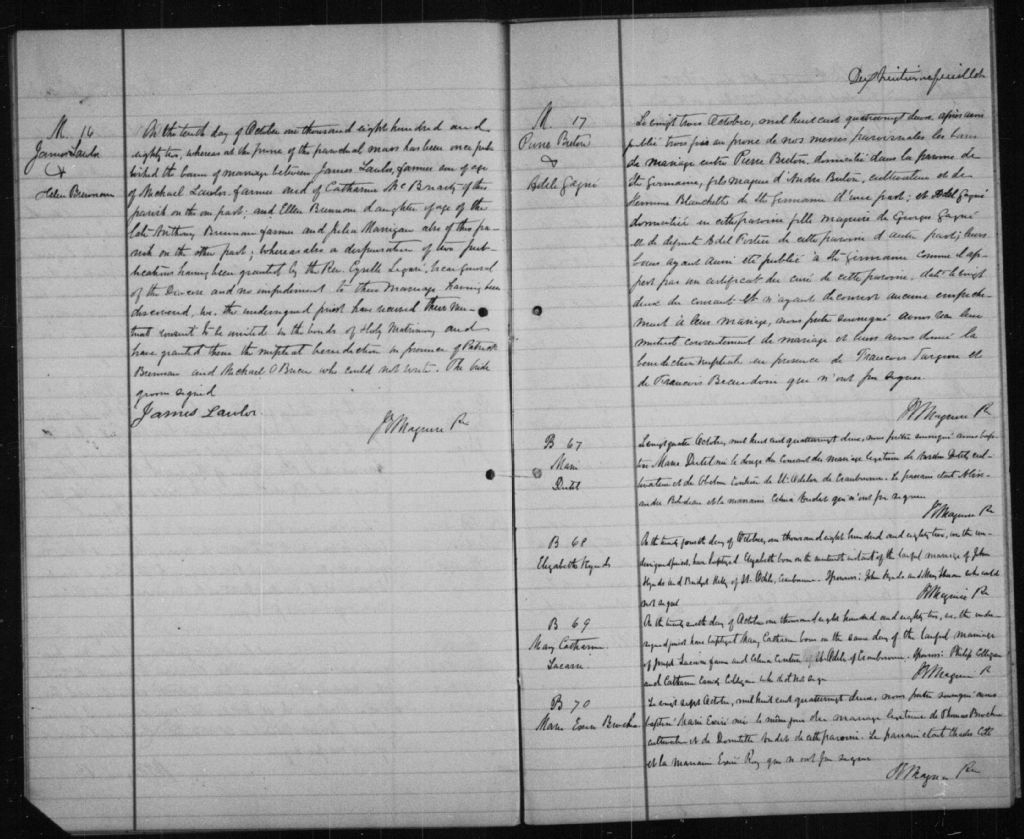 M. 16
James Lawlor
&
Helen Brennan
On the tenth day of October one thousand eight hundred and
eighty two, whereas at the prone of the parochial mass has been once pub-
lished the banns of marriage between James Lawlor, farmer son of age
of Michael Lawlor farmer and of Catherine McBrearty of this
parish on the one part; and Ellen Brennan daughter of age of the
late Anthony Brennan farmer and Julia Mangan also of this pa-
rish on the other part; whereas also a dispensation of two pub-
lications having been granted by the Rev. Cyrille Legaré, Vicar General
of the Diocese and no impediment to their Marriage having been
discovered, we, the undersigned priest have received their mu-
tual consent to be united in the bonds of Holy Matrimony and
have granted them the nuptial benediction in presence of Patrick
Brennan and Michael O Brien who could not write. The bride
groom signed
James Lawlor.
Maguire Ptr
Dix huitième feuillet
M. 17
Pierre Breton
&
Adele Gagné
Le vingt trois Octobre, mil huit cent quatrevingt deux, après avoir
publié trois fois au prone de nos messes paroissiales les bans
de mariage entre Pierre Breton, domicilié dans la paroisse de
Ste Germaine, fils majeur d'Andre Breton, cultivateur et de
Blanchette de Ste Germaine d'une part; et Adel Gagné
domiciliée en cette paroisse fille majeure de Georges Gagné
et de défunte Adel Fortier de cette paroisse d'autre part; leurs
bans ayant aussi été publié à Ste Germaine comme il ap-
pert par un certificat du curé de cette paroisse, daté le vingt
deux du courant et n'ayant découvert aucune empeche-
ment à leur mariage, nous pretre soussigné avons reçu leur
mutuel consentement de mariage et leurs avons donné la
benediction nuptiale en presence de Francois Turgeon et
de Francois Beaudoin qui n'ont pu signer.
Maguire Ptr
B 67
Marie
Dutil
Le vingt quatre Octobre, mil huit cent quatrevingt deux, nous pretre soussigné avons bap-
tisé Marie Dutil née le du courant du mariage legitime de Dutil, cul-
tivateur et de Couture de St. Adelar de Cranbourne. Le parrain etait Alex-
andre Bilodeau et la marraine Celina qui n'ont pu signer.
Maguire Ptr
B 68
Elizabeth Hynds
On the twenty fourth day of October, one thousand eight hundred and eighty two, we the un-
dersigned priest, have baptized Elizabeth born on the instant of the lawful marriage of John
Hynds and Bridget of St. Odile, Cranbourne. Sponsors: John Hynds and Mary who could
not sign
Maguire Ptr
B 69
Mary Catherine
Lacasse
On the twenty sixth day of October one thousand eight hundred and eighty two, we the under-
signed priest have baptized Mary Catherine born on the same day of the lawful marriage
of Joseph Lacasse farmer and Celina Couture of St. Odile of Cranbourne. Sponsors: Philip Colligan
and Catherine Colligan who did not sign
Maguire Ptr
B 70
Marie
Le vingt sept Octobre, mil huit cent quatrevingt deux, nous pretre soussigné avons
baptisé Marie née le même jour du mariage legitime de Thomas
cultivateur et de de cette paroisse. Le parrain etait Charles Coté
et la Marraine Roy qui n'ont pu signer
Maguire Ptr